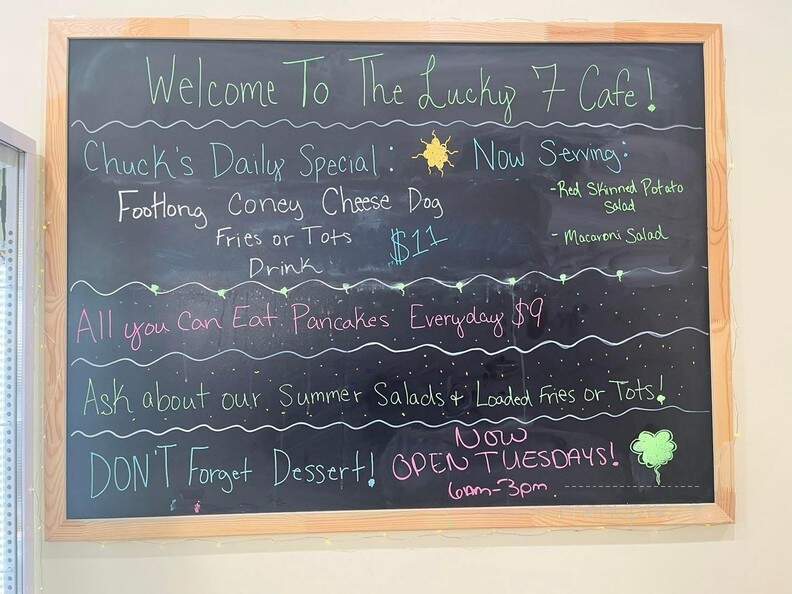 Welcome To The Lucky 7 Cafe!
Chuck's Daily Special:
Footlong Coney Cheese Dog
Fries or Tots
Drink
$11
Now Serving:
- Red Skinned Potato
Salad
- Macaroni Salad
All you Can Eat Pancakes Everyday $9
Ask about our Summer Salads & Loaded Fries or Tots!
DON'T Forget Dessert!
NOW
OPEN TUESDAYS!
6am-3pm